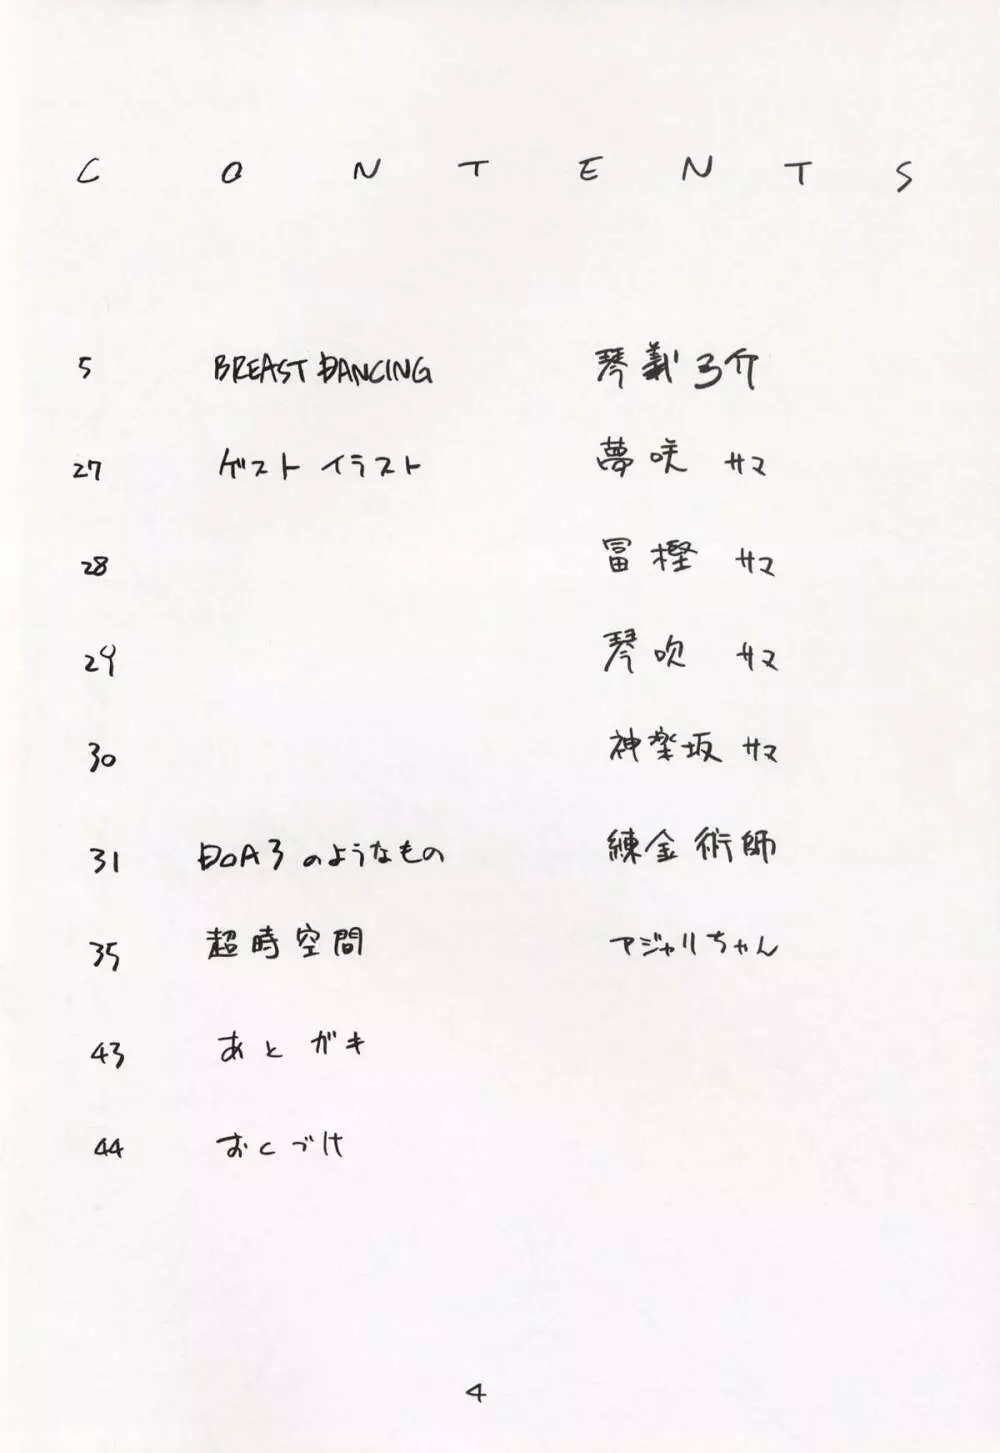 CONTENTS
5 BREAST DANCING 琴義弓介
27 ゲストイラスト 夢咲サマ
28 冨樫サマ
29 琴吹サマ
30 神楽坂サマ
31 DOA3のようなもの 練金術師
35 超時空間 アジャリちゃん
43 あとがキ
44 おくづけ
4